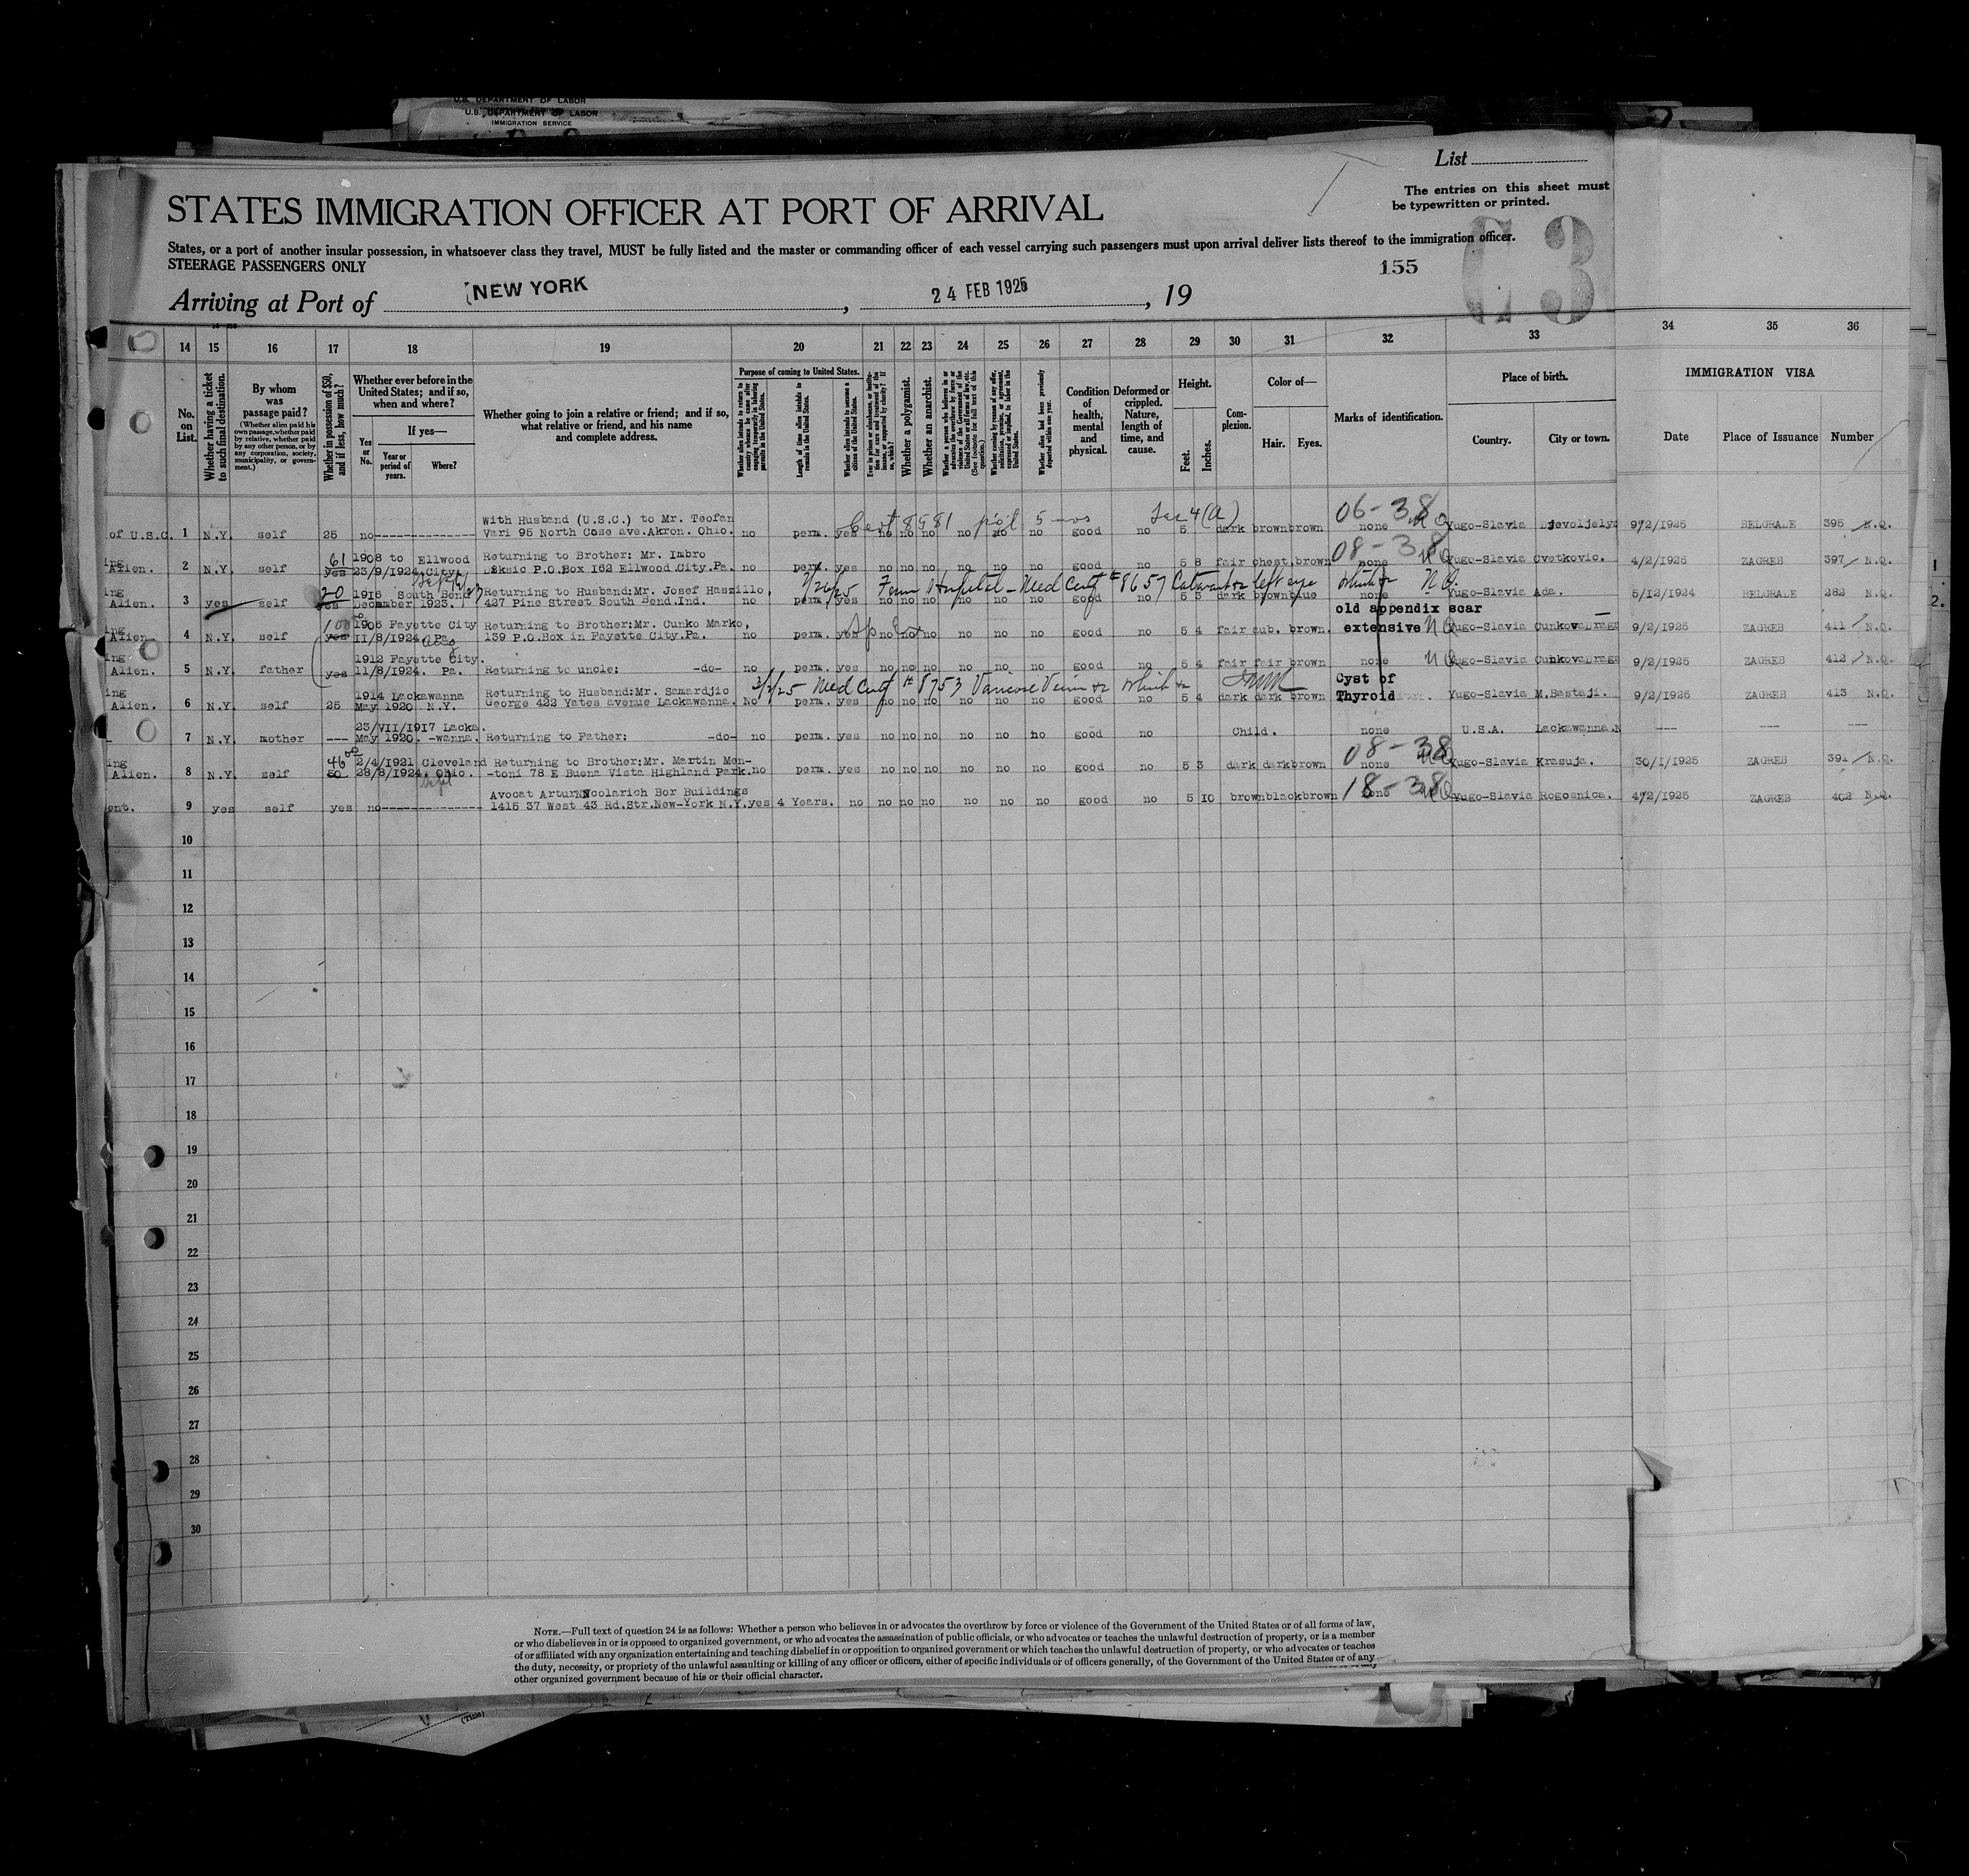 U.S. DEPARTMENT OF LABOR
U.S. DEPARTMENT OF LABOR
IMMIGRATION SERVICE
List
The entries on this sheet must
be typewritten or printed.
STATES IMMIGRATION OFFICER AT PORT OF ARRIVAL
States, or a port of another insular possession, in whatsoever class they travel, MUST be fully listed and the master or commanding officer of each vessel carrying such passengers must upon arrival deliver lists thereof to the immigration officer.
STEERAGE PASSENGERS ONLY
155
63
Arriving at Port of NEW YORK, 24 FEB 1925, 19
14 15 16 17 18 19 20 21 22 23 24 25 26 27 28 29 30 31 32 33 34 35 36
No. on List.
Whether having a ticket to such final destination.
By whom was passage paid?
(Whether alien paid his own passage, whether paid by relative, whether paid by any other person, or by any corporation, society, municipality, or government.)
Whether in possession of $50, and if less, how much?
Whether ever before in the United States; and if so, when and where?
Yes or No.
If yes—
Year or period of years.
Where?
Whether going to join a relative or friend; and if so, what relative or friend, and his name and complete address.
Purpose of coming to United States.
Whether alien intends to return to country whence he came after engaging temporarily in laboring pursuits in the United States.
Length of time alien intends to remain in the United States.
Whether alien intends to become a citizen of the United States.
Whether a polygamist.
Whether an anarchist.
Condition of health, mental and physical.
Deformed or crippled. Nature, length of time, and cause.
Height.
Feet.
Inches.
Complexion.
Color of—
Hair. Eyes.
Marks of identification.
Place of birth.
Country.
City or town.
IMMIGRATION VISA
Date
Place of Issuance
Number
Cert 8581 Sec 4(a) 06-38
With Husband (U.S.C.) to Mr. Teofan
of U.S.C. 1 N.Y. self 25 no Vari 95 North Case ave. Akron. Ohio. no perm. yes no no no no no no good no 5 dark brown brown none Yugo-Slavia 9/2/1925 BELGRADE 395 N.Q.
61 1908 to Ellwood Returning to Brother: Mr. Imbro 08-38
Alien. 2 N.Y. self yes 23/9/1924. City. P.O.Box 162 Ellwood City.Pa. no perm. yes no no no no no no good no 5 8 fair chest. brown none Yugo-Slavia Cvetkovic. 4/2/1925 ZAGREB 397 N.Q.
2/26/25 Hospital - Med Cert #8657 Cataract left eye which N.Q.
20 1916 South Bend Returning to Husband:Mr. Josef Haszillo,
Alien. 3 yes self yes December 1923. 427 Pine Street South Bend.Ind. no perm. yes no no no no no no good no 5 3 dark brown blue none Yugo-Slavia Ada. 5/12/1924 BELGRADE 282 N.Q.
old appendix scar
100 1906 Fayette City Returning to Brother:Mr. Cunko Marko,
Alien. 4 N.Y. self yes 11/8/1924. Pa. 139 P.O.Box in Fayette City.Pa. no perm. yes no no no no no no good no 5 4 fair aub. brown. extensive Yugo-Slavia CunkovaDraga 9/2/1925 ZAGREB 411 N.Q.
1912 Fayette City.
Alien. 5 N.Y. father yes 11/8/1924. Pa. Returning to uncle: -do- no perm. yes no no no no no no good no 5 4 fair fair brown none Yugo-Slavia CunkovaDraga 9/2/1925 ZAGREB 412 N.Q.
Med Cert # 8753 Varicose Veins which
1914 Lackawanna Returning to Husband:Mr. Samardjic Cyst of
Alien. 6 N.Y. self 25 May 1920 N.Y. George 422 Yates avenue Lackawanna. No perm. yes no no no no no no good no 5 4 dark dark brown Thyroid Yugo-Slavia M.Bastaji. 9/2/1925 ZAGREB 413 N.Q.
23/VII/1917 Lacka.
7 N.Y. mother --- May 1920. -wanna. Returning to Father: -do- no perm. yes no no no no no no good no Child. none U.S.A. Lackawanna.N --- --- ---
46 2/4/1921 Cleveland Returning to Brother:Mr. Martin Mon- 08-38
Alien. 8 N.Y. self 50 28/8/1924. Ohio. -toni 78 E Buena Vista Highland Park. no perm. yes no no no no no no good no 5 3 dark dark brown none Yugo-Slavia Krasuja. 30/1/1925 ZAGREB 391 N.Q.
Avocat Artur Nicolarich Bor Buildings 18-38
ent. 9 yes self yes no 1415 37 West 43 Rd.Str.New-York N.Y. yes 4 Years. no no no no no no no good no 5 10 brown black brown none Yugo-Slavia Rogosnica. 4/2/1925 ZAGREB 402 N.Q.
10
11
12
13
14
15
16
17
18
19
20
21
22
23
24
25
26
27
28
29
30
NOTE.—Full text of question 24 is as follows: Whether a person who believes in or advocates the overthrow by force or violence of the Government of the United States or of all forms of law,
or who disbelieves in or is opposed to organized government, or who advocates the assassination of public officials, or who advocates or teaches the unlawful destruction of property, or is a member
of or affiliated with any organization entertaining and teaching disbelief in or opposition to organized government or which teaches the unlawful destruction of property, or who advocates or teaches
the duty, necessity, or propriety of the unlawful assaulting or killing of any officer or officers, either of specific individuals or of officers generally, of the Government of the United States or of any
other organized government because of his or their official character.
(Title)